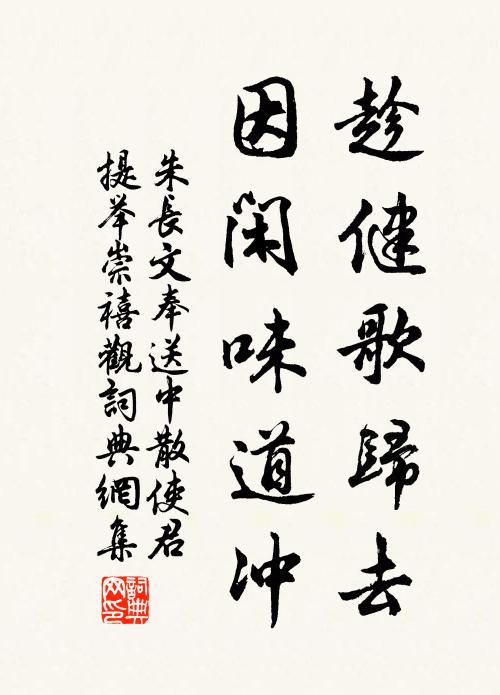 趁健歌歸去
因閑味道冲
朱長文奉送中散使君
提举崇禧觀詞典網集
詞典網印